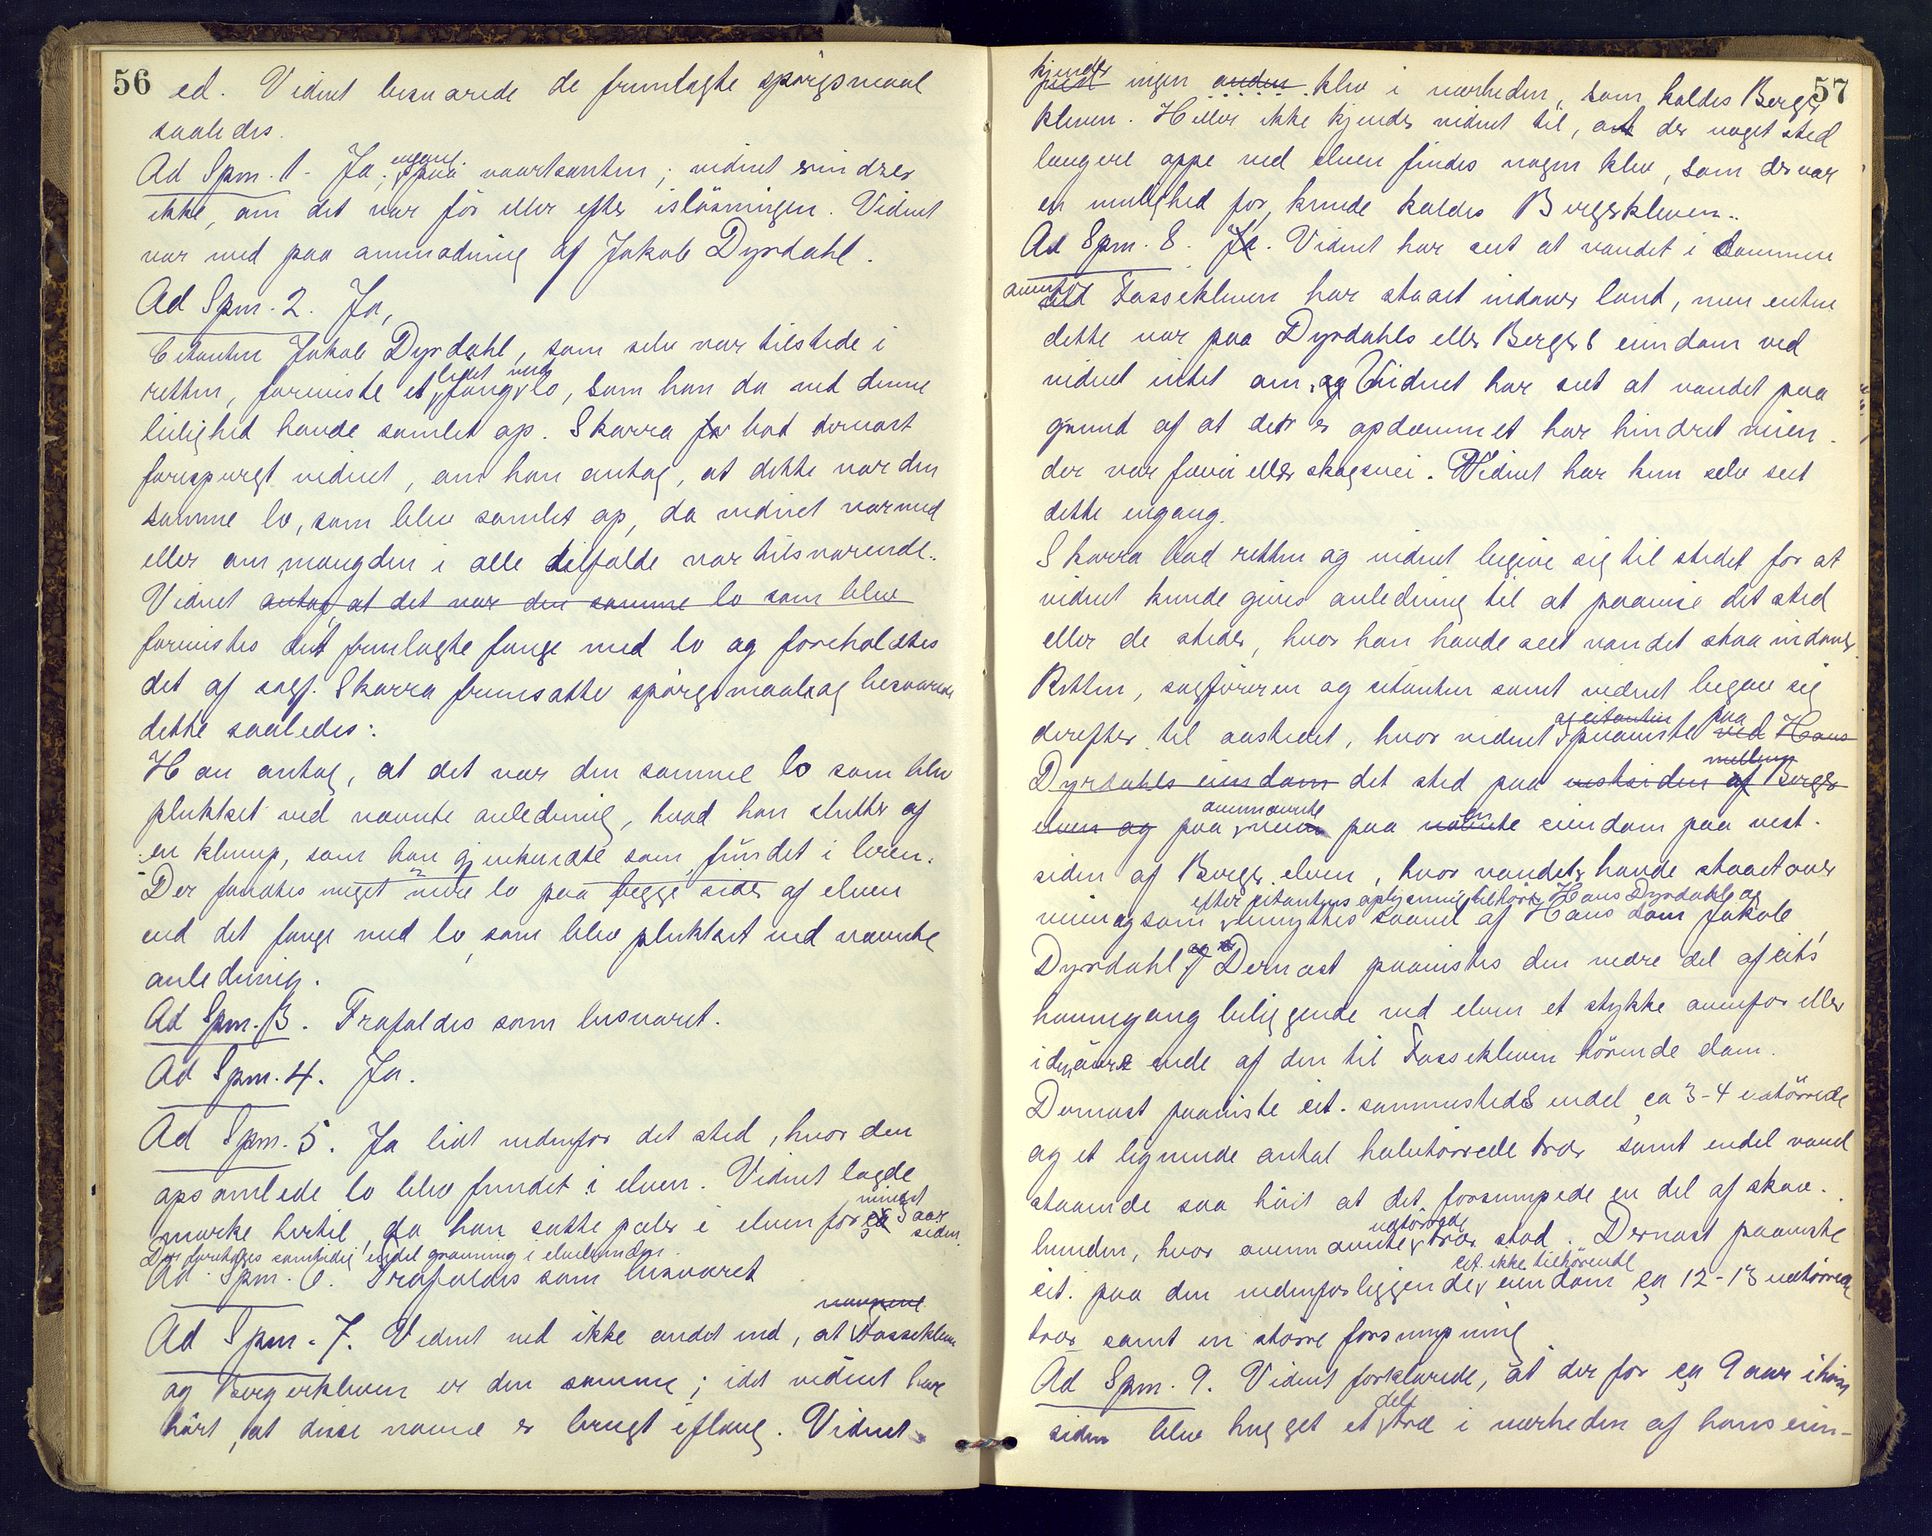 56
ed. Vidnet besvarede de fremlagte spørgsmaal
saaledes.
Ad Spm. 1 - Ja, engang paa vaarkanten; vidnet erindrer
ikke, om det var før eller efter isløsningen. Vidnet
var med paa anmodning af Jakob Dyrdahl.
Ad Spm. 2. Ja,
Citanten Jakob Dyrdahl, som selv var tilstede i
retten, foreviste et lidet fang med lo, som han da ved denne
leilighed havde samlet op. Skarra bad dernæst
forespurgt vidnet, om han antog, at dette var den
samme lo, som blev samlet op, da vidnet var med
eller om mængden i alle tilfælde var tilsvarende.
Vidnet antog, at det var den samme lo som blev
forevistes det fremlagte fange med lo og foreholdtes
det af sagf. Skarra fremsatte spørgsmaal og besvarede
dette saaledes:
Han antog, at det var den samme lo som blev
plukket ved nævnte anledning, hvad han slutter af
en klump, som han gjenkjendte som fundet i loen.
Der fandtes meget mere lo paa begge sider af elven
end det fange med lo, som blev plukket ved nævnte
anledning.
Ad Spm. 3. Frafaldes som besvaret.
Ad Spm. 4. Ja.
Ad Spm. 5. Ja lidt nedenfor det sted, hvor den
opsamlede lo blev fundet i elven. Vidnet lagde
mærke hertil, da han satte pæler i elven for mindst 3 aar siden.
Der foretoges samtidig endel gravning i elvebunden.
Ad Spm. 6. Frafaldes som besvaret
Ad Spm. 7. Vidnet ved ikke andet end, at navnene Fossekleven
og Bergerkleven er den samme; idet vidnet har
hørt, at disse navne er brugt iflæng. Vidnet
57
kjender ingen anden klev i nærheden, som kaldes Berger
kleven. Heller ikke kjender vidnet til, at der noget sted
længere oppe ved elven findes nogen klev, som der var
en mulighed for, kunde kaldes Bergerkleven.
Ad Spm. 8. Ja. Vidnet har seet at vandet i dammen
ovenfor Fossekleven har staaet indover land, men enten
dette var paa Dyrdahls eller Bergers eiendom ved
vidnet intet om, og Vidnet har seet at vandet paa
grund af at det er opdæmmet har hindret veien.
der var fævei eller skogsvei. Vidnet har kun selv seet
dette engang.
Skarra bad retten og vidnet begive sig til stedet for at
vidnet kunde gives anledning til at paavise det sted
eller de steder, hvor han havde seet vandet staa indover.
Retten, sagføreren og citanten samt vidnet begav sig
derefter til aastedet, hvor vidnet af citanten paaviste paa ved Hans
Dyrdahls eiendom det sted paa vestsiden af mellem Berger
elven og paa ovennævnte vei paa en nævnte eiendom paa vest.
siden af Berger elven, hvor vandet havde staaet over
veien og som efter citantens oplysning tilhører Hans Dyrdahl og benyttes saavel af Hans som Jakob
Dyrdahl og Dernæst paavistes den nedre del af cit's
havnegang beliggende ved elven et stykke ovenfor eller
i den øvre ende af den til Fossekleven hørende dam.
Dernæst paaviste cit. sammesteds endel, ca 3-4 udtørrede
og et lignende antal halvtørrede trær samt endel vand
staaende saa høit at det forsumpede en del af skov.
bunden, hvor ovennævnte udtørrede trær stod. Dernæst paaviste
cit. paa den nedenforliggende cit. ikke tilhørende eiendom ca 12-13 udtørrede
trær samt en større forsumpning
Ad Spm. 9. Vidnet forklarede, at der for ca 9 aar
siden blev hugget et delt træ i nærheden af hans eien-